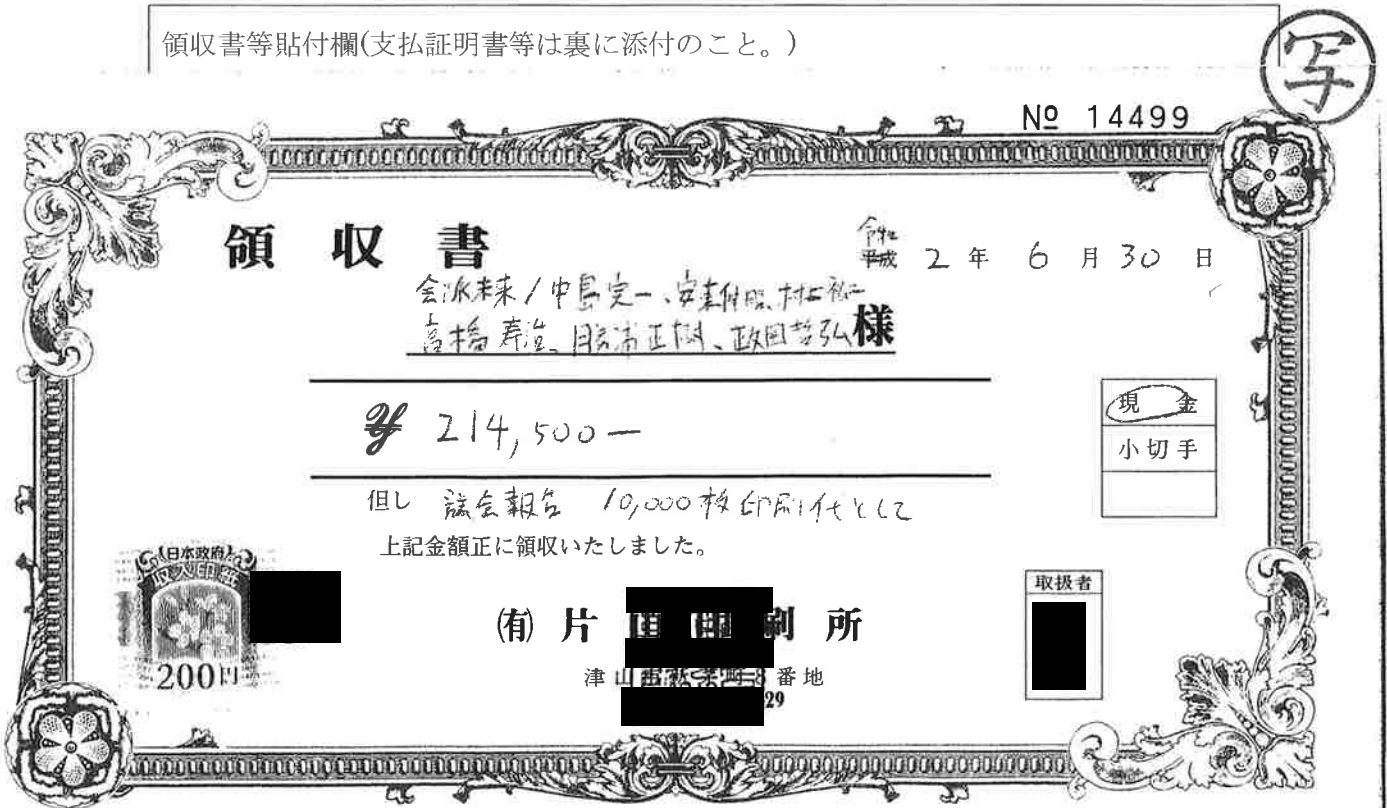 領収書等貼付欄(支払証明書等は裏に添付のこと。)
写
№ 14499
領収書
令和
平成 2年 6月30日
会派未来/中島完一、安東伸昭、村上祐二
高橋寿治、勝浦正樹、政田哲弘様
¥ 214,500ー
現金
小切手
但し 議会報告 10,000枚印刷代として
上記金額正に領収いたしました。
日本政府
収入印紙
200円
取扱者
(有)片 刷所
津山 番地
29